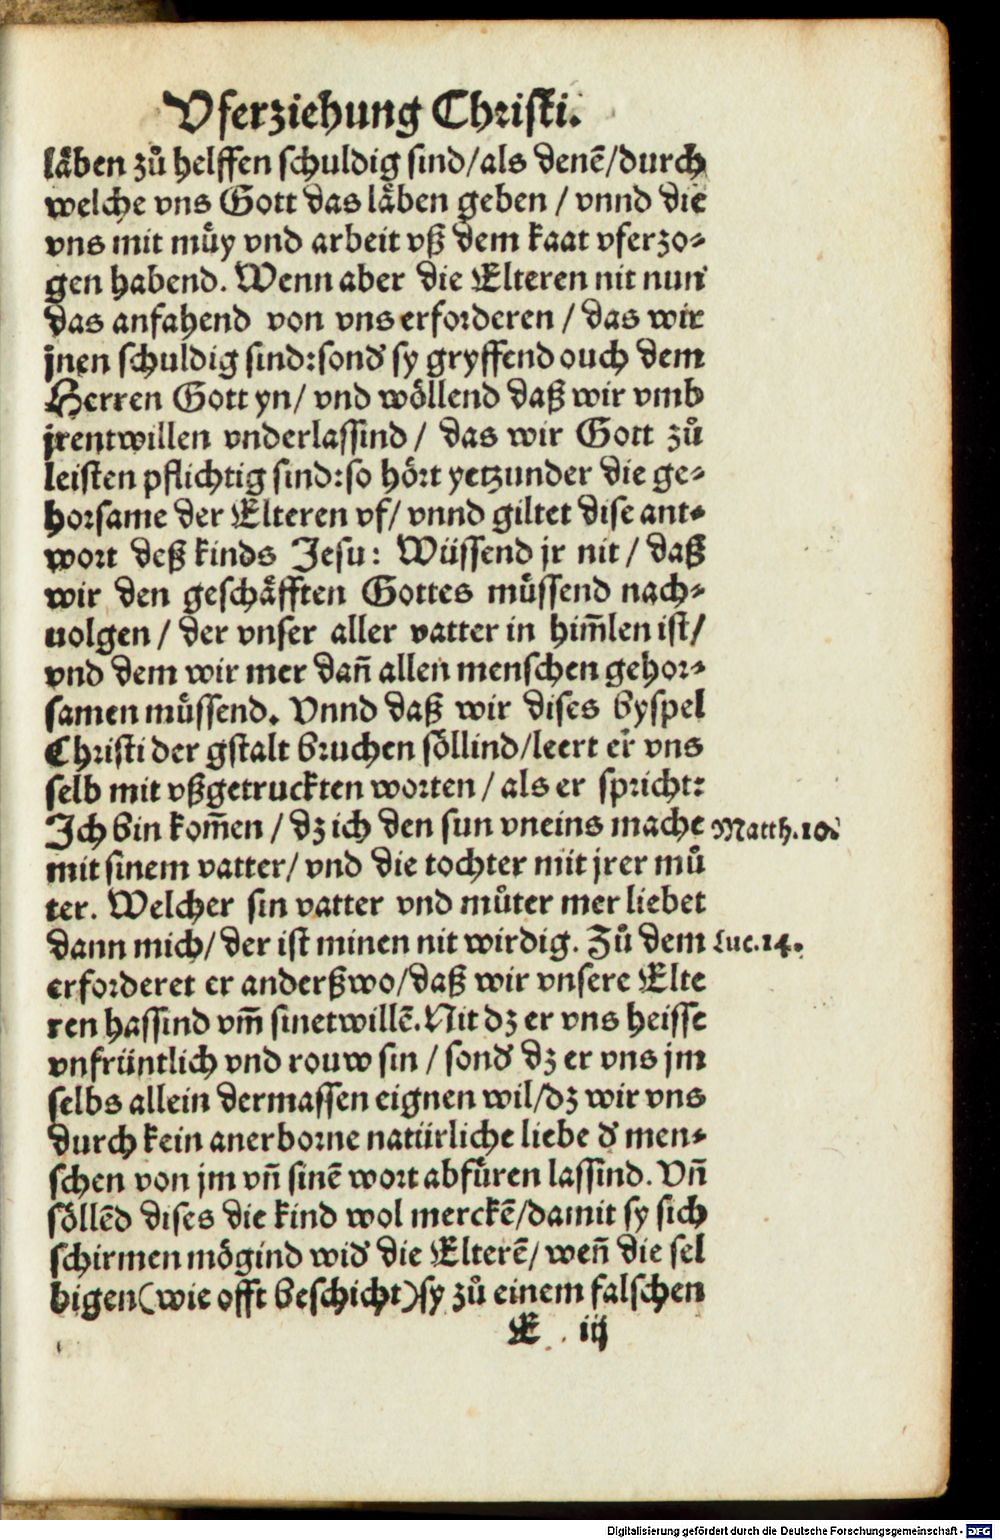 Vferziehung Christi.
laͤben zuͦ helffen schuldig sind/als denē/durch
welche vns Gott das laͤben geben / vnnd die
vns mit muͤy vnd arbeit vß dem kaat vferzo⸗
gen habend. Wenn aber die Elteren nit nun
das anfahend von vns erforderen / das wir
jnen schuldig sind:sond' sy gryffend ouch dem
Herren Gott yn/ vnd woͤllend daß wir vmb
jrentwillen vnderlassind / das wir Gott zuͦ
leisten pflichtig sind:so hoͤrt yetzunder die ge⸗
horsame der Elteren vf/ vnnd giltet dise ant⸗
wort deß kinds Jesu: Wüssend jr nit / daß
wir den geschaͤfften Gottes muͤssend nach⸗
uolgen / der vnser aller vatter in him̃len ist/
vnd dem wir mer dañ allen menschen gehor⸗
samen muͤssend. Vnnd daß wir dises byspel
Christi der gstalt bruchen soͤllind/leert er vns
selb mit vßgetruckten worten / als er spricht:
Ich bin kom̃en / dz ich den sun vneins mache
Matth.10.
mit sinem vatter/ vnd die tochter mit jrer muͦ
ter. Welcher sin vatter vnd muͦter mer liebet
dann mich/ der ist minen nit wirdig. Zuͦ dem
Luc.14.
erforderet er anderßwo/daß wir vnsere Elte
ren hassind vm̃ sinetwillē. Nit dz er vns heisse
vnfrüntlich vnd rouw sin / sond' dz er vns jm
selbs allein dermassen eignen wil/dz wir vns
durch kein anerborne natürliche liebe d' men⸗
schen von jm vñ sinē wort abfuͤren lassind. Vñ
soͤllēd dises die kind wol merckē/damit sy sich
schirmen moͤgind wid' die Elterē/ weñ die sel
bigen(wie offt beschicht)sy zuͦ einem falschen
E iij
Digitalisierung gefördert durch die Deutsche Forschungsgemeinschaft - DFG